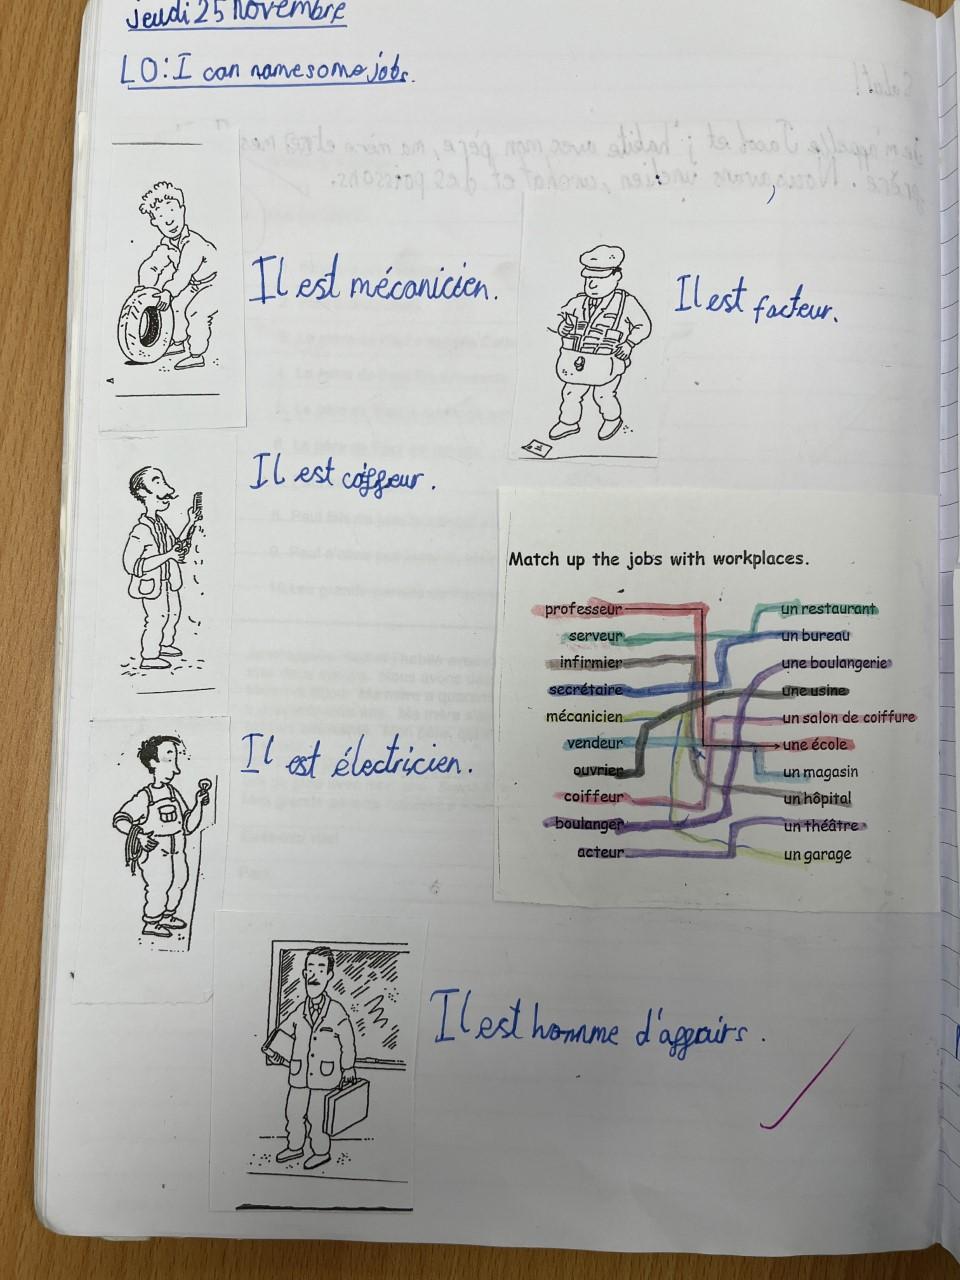 jeudi 25 novembre
LO: I can name some jobs.
Il est mécanicien.
Il est facteur.
Il est coiffeur.
Il est électricien.
Il est homme d'affairs.
Match up the jobs with workplaces.
professeur un restaurant
serveur un bureau
infirmier une boulangerie
secrétaire une usine
mécanicien un salon de coiffure
vendeur une école
ouvrier un magasin
coiffeur un hôpital
boulanger un théâtre
acteur un garage